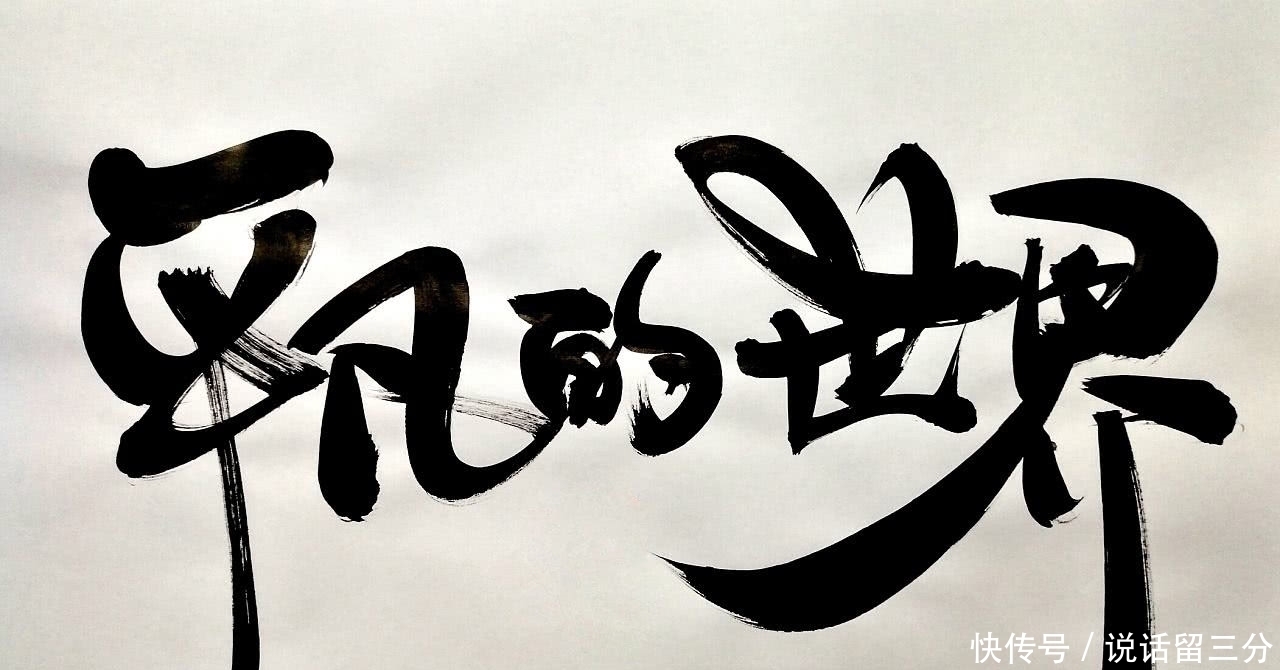 平凡的世界
快传号/说话留三分